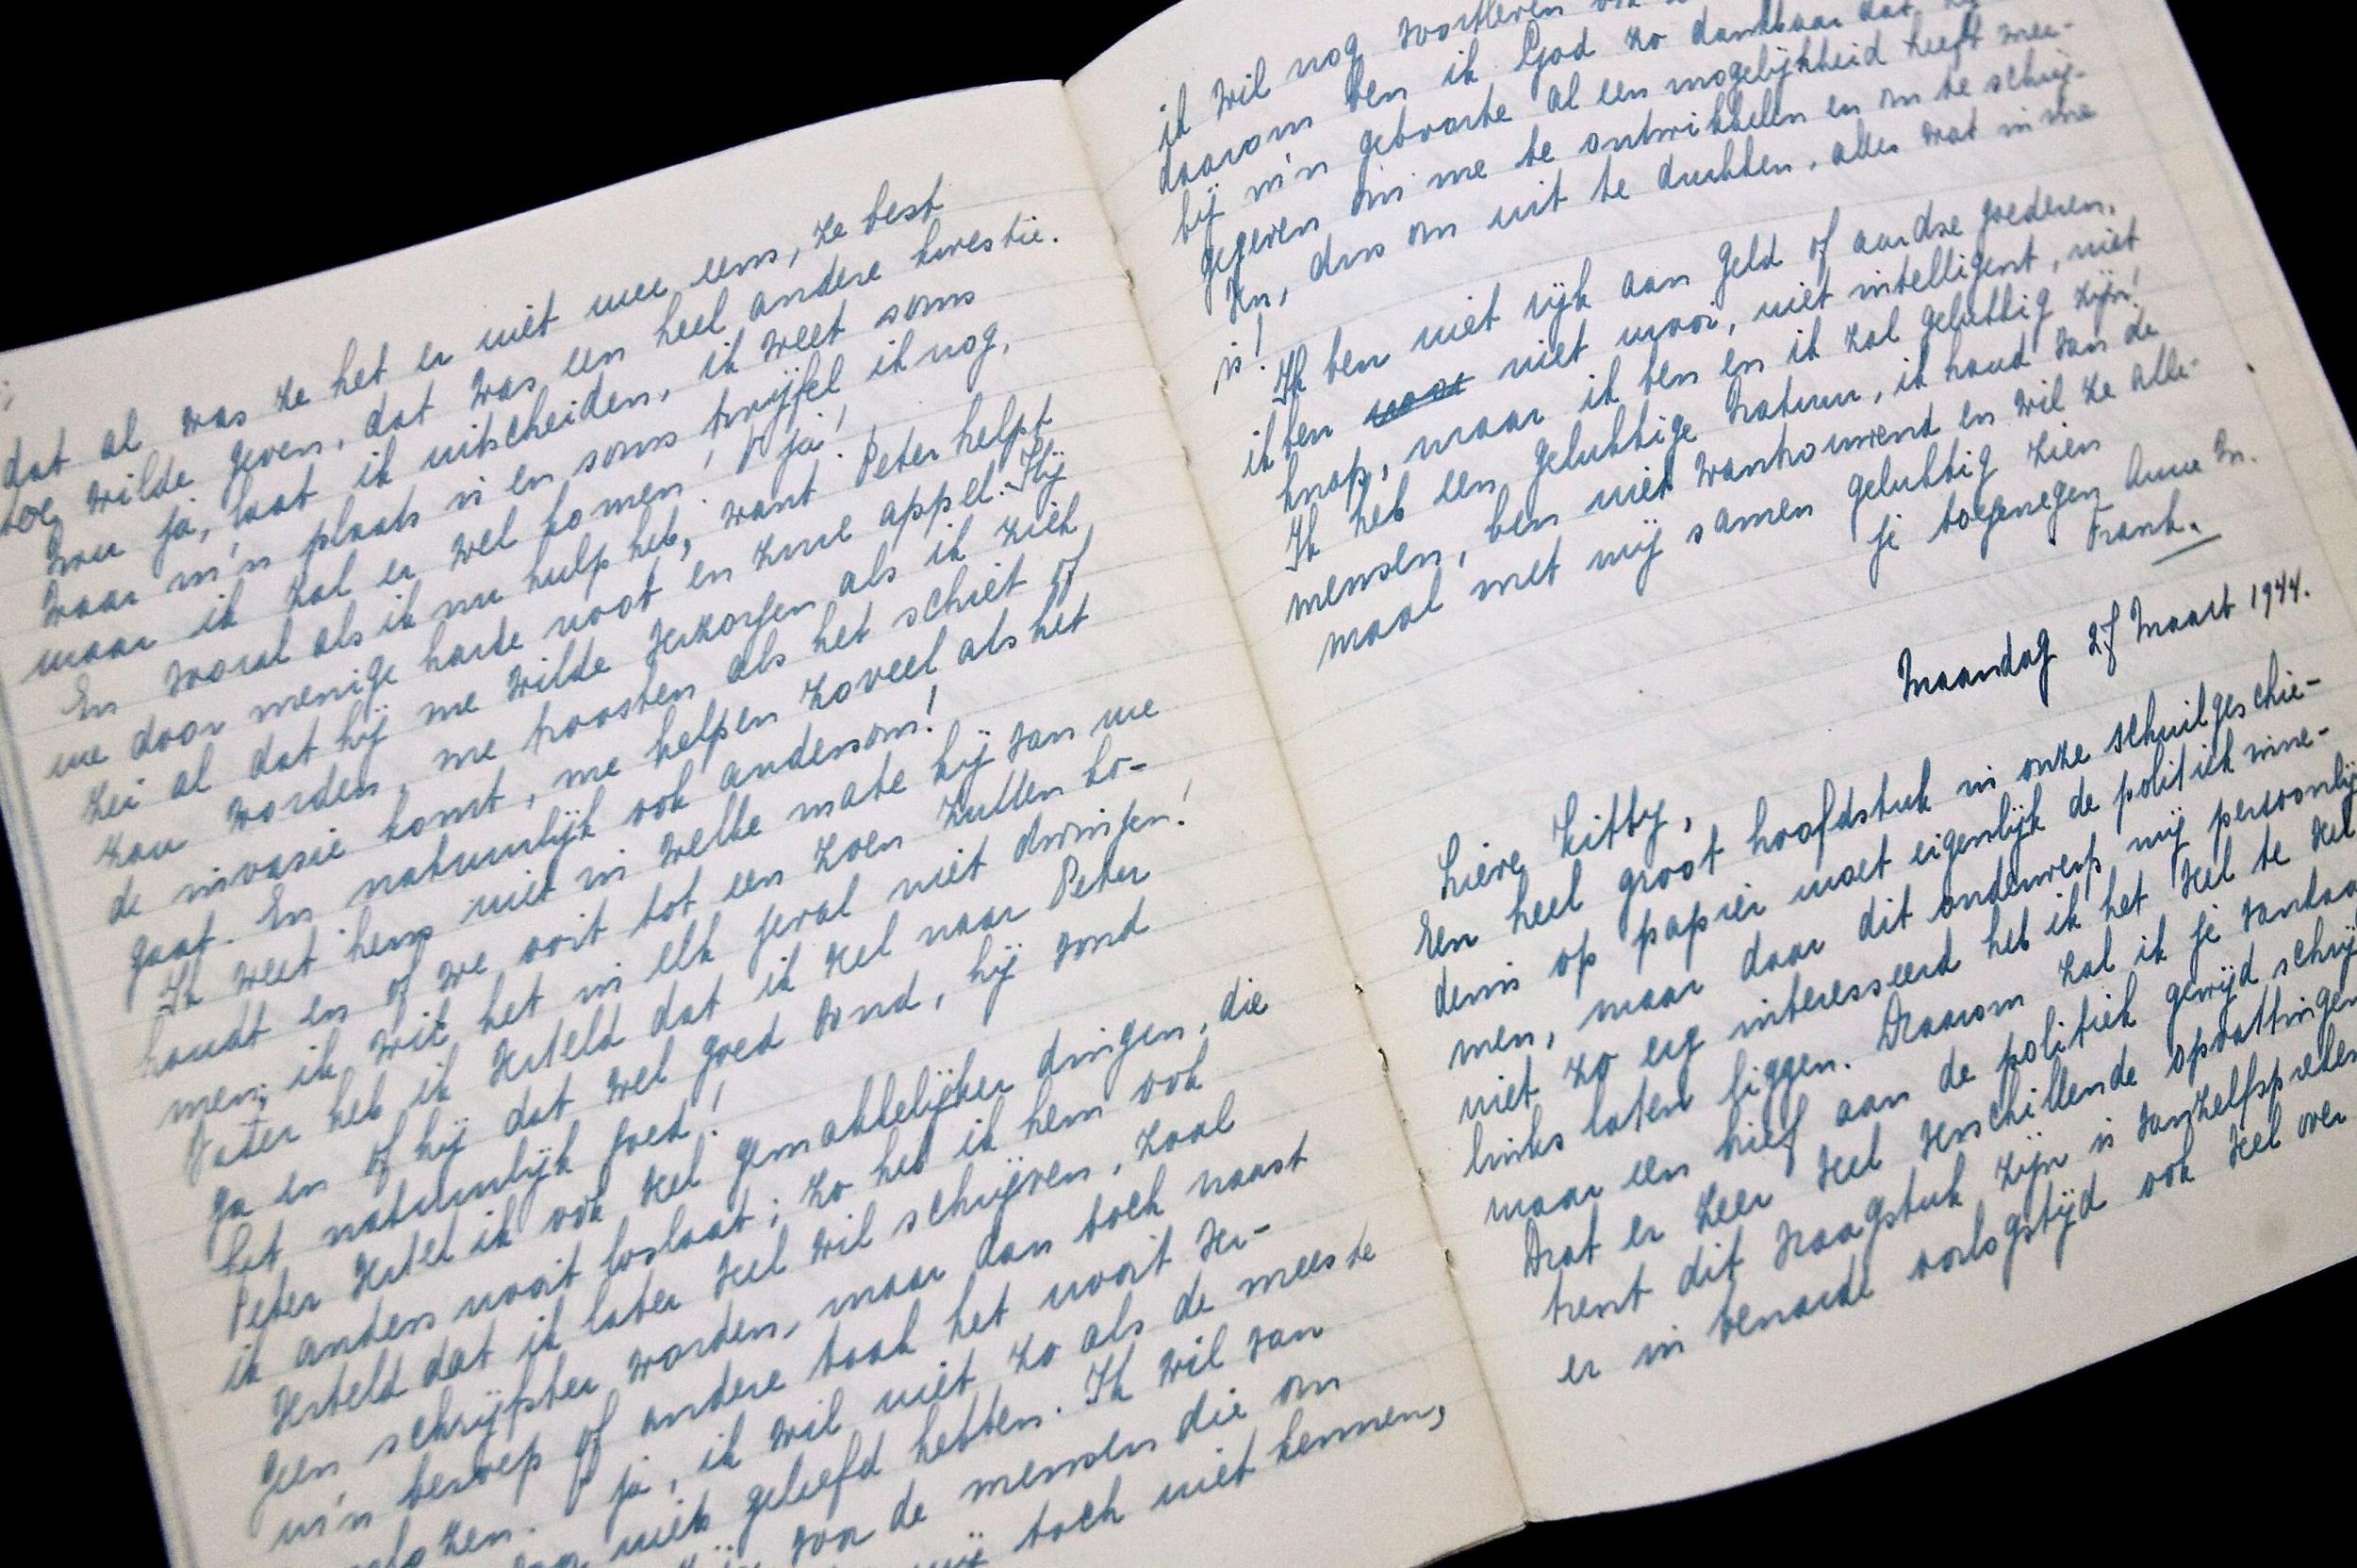 dat al was ze het er niet mee eens, ze best
toe wilde geven, dat was een heel andere kwestie.
Nou ja, laat ik uitscheiden, ik weet soms
waar m'n plaats is en soms twijfel ik nog,
maar ik zal er wel komen! O ja!
En vooral als ik nu hulp heb, want Peter helpt
me door menige harde noot en zure appel. Hij
zei al dat hij me wilde verzorgen als ik ziek
zou worden, me troosten als het schiet of
de invasie komt, me helpen zoveel als het
gaat. En natuurlijk ook andersom!
Ik weet heus niet in welke mate hij van me
houdt en of we ooit tot een zoen zullen ko-
men; ik wil het in elk geval niet dwingen!
Vader heb ik verteld dat ik veel naar Peter
ga en of hij dat wel goed vond, hij vond
het natuurlijk goed!
Peter vertel ik ook veel gemakkelijker dingen, die
ik anders nooit loslaat; zo heb ik hem ook
verteld dat ik later veel wil schrijven, zoal
geen schrijfster worden, maar dan toch naast
m'n beroep of andere taak het nooit ver-
O ja, ik wil niet zo als de meeste
niets geleefd hebben. Ik wil van
voor de mensen die om
mij toch niet kennen,
ik wil nog voortleven ook
daarom ben ik God zo dankbaar dat
bij m'n geboorte al een mogelijkheid heeft mee-
gegeven om me te ontwikkelen en om te schrij-
ven, dus om uit te drukken, alles wat in me
is!
Ik ben niet rijk aan geld of aardse goederen,
ik ben niet mooi, niet intelligent, niet
knap, maar ik ben en ik zal gelukkig zijn!
Ik heb een gelukkige natuur, ik houd van de
mensen, ben niet wantrouwend en wil ze alle-
maal met mij samen gelukkig zien
je toegenegen Anne M.
Frank.
Maandag 27 Maart 1944.
Lieve Kitty,
Een heel groot hoofdstuk in onze schuilgeschie-
denis op papier moet eigenlijk de politiek inne-
men, maar daar dit onderwerp mij persoonlijk
niet zo erg interesseerd heb ik het veel te veel
links laten liggen. Daarom zal ik je vandaag
maar een brief aan de politiek gewijd schrij
Dat er zeer veel verschillende opvattingen
trent dit vraagstuk zijn is vanzelfspreken
er in benarde oorlogstijd ook veel over